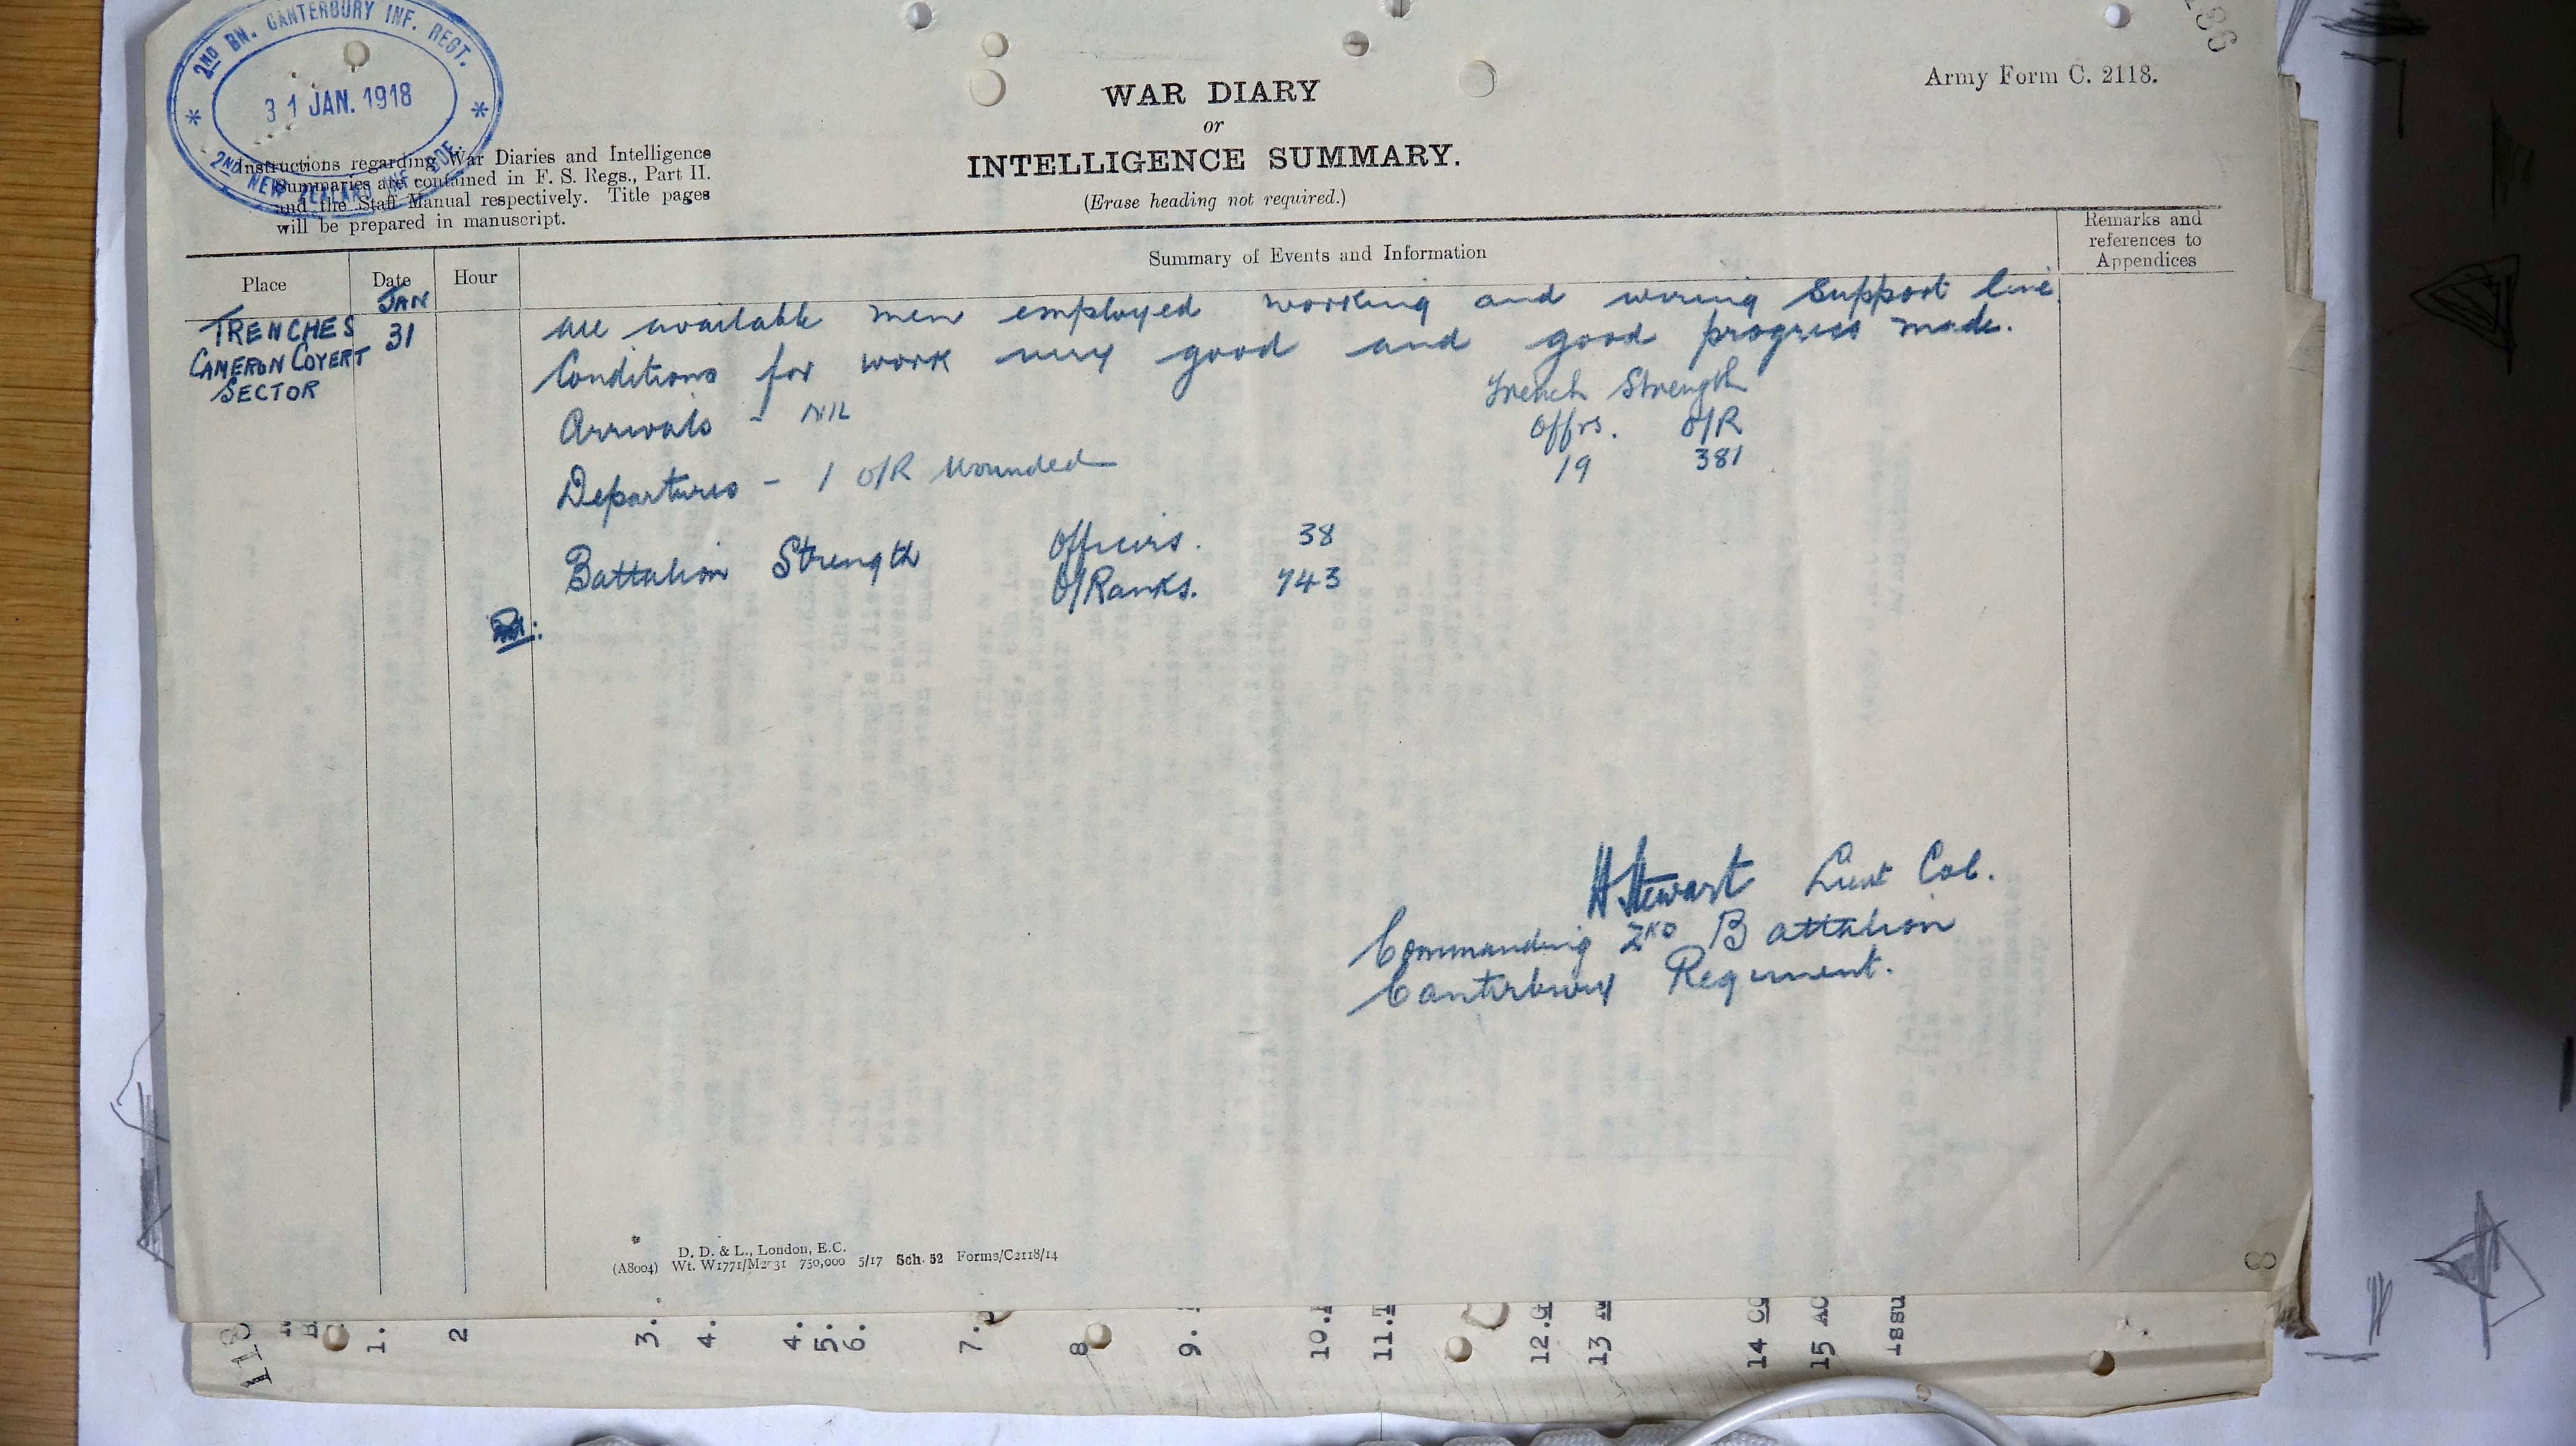 2ND BN. CANTERBURY INF. REGT.
31 JAN. 1918
2ND NEW ZEALAND INF. BDE.
Army Form C. 2118.
WAR DIARY
or
INTELLIGENCE SUMMARY.
(Erase heading not required.)
Instructions regarding War Diaries and Intelligence
Summaries are contained in F. S. Regs., Part II.
and the Staff Manual respectively. Title pages
will be prepared in manuscript.
Place
Date
Hour
Summary of Events and Information
Remarks and
references to
Appendices
TRENCHES
CAMERON COVERT
SECTOR
JAN
31
All available men employed working and wiring support line.
Conditions for work very good and good progress made.
Trench Strength
Offrs. O/R
19 381
Arrivals - NIL
Departures - 1 O/R Wounded
Battalion Strength Officers. 38
O/Ranks. 743
H Stewart Lieut Col.
Commanding 2ND Battalion
Canterbury Regiment.
D. D. & L., London, E.C.
(A8004) Wt. W1771/M2 31 750,000 5/17 Sch. 52 Forms/C2118/14
8
118
1.
2
3.
4.
4.
5.
6.
7.
8
9.
10.
11.T
12.G
13
14
15 AC
issu